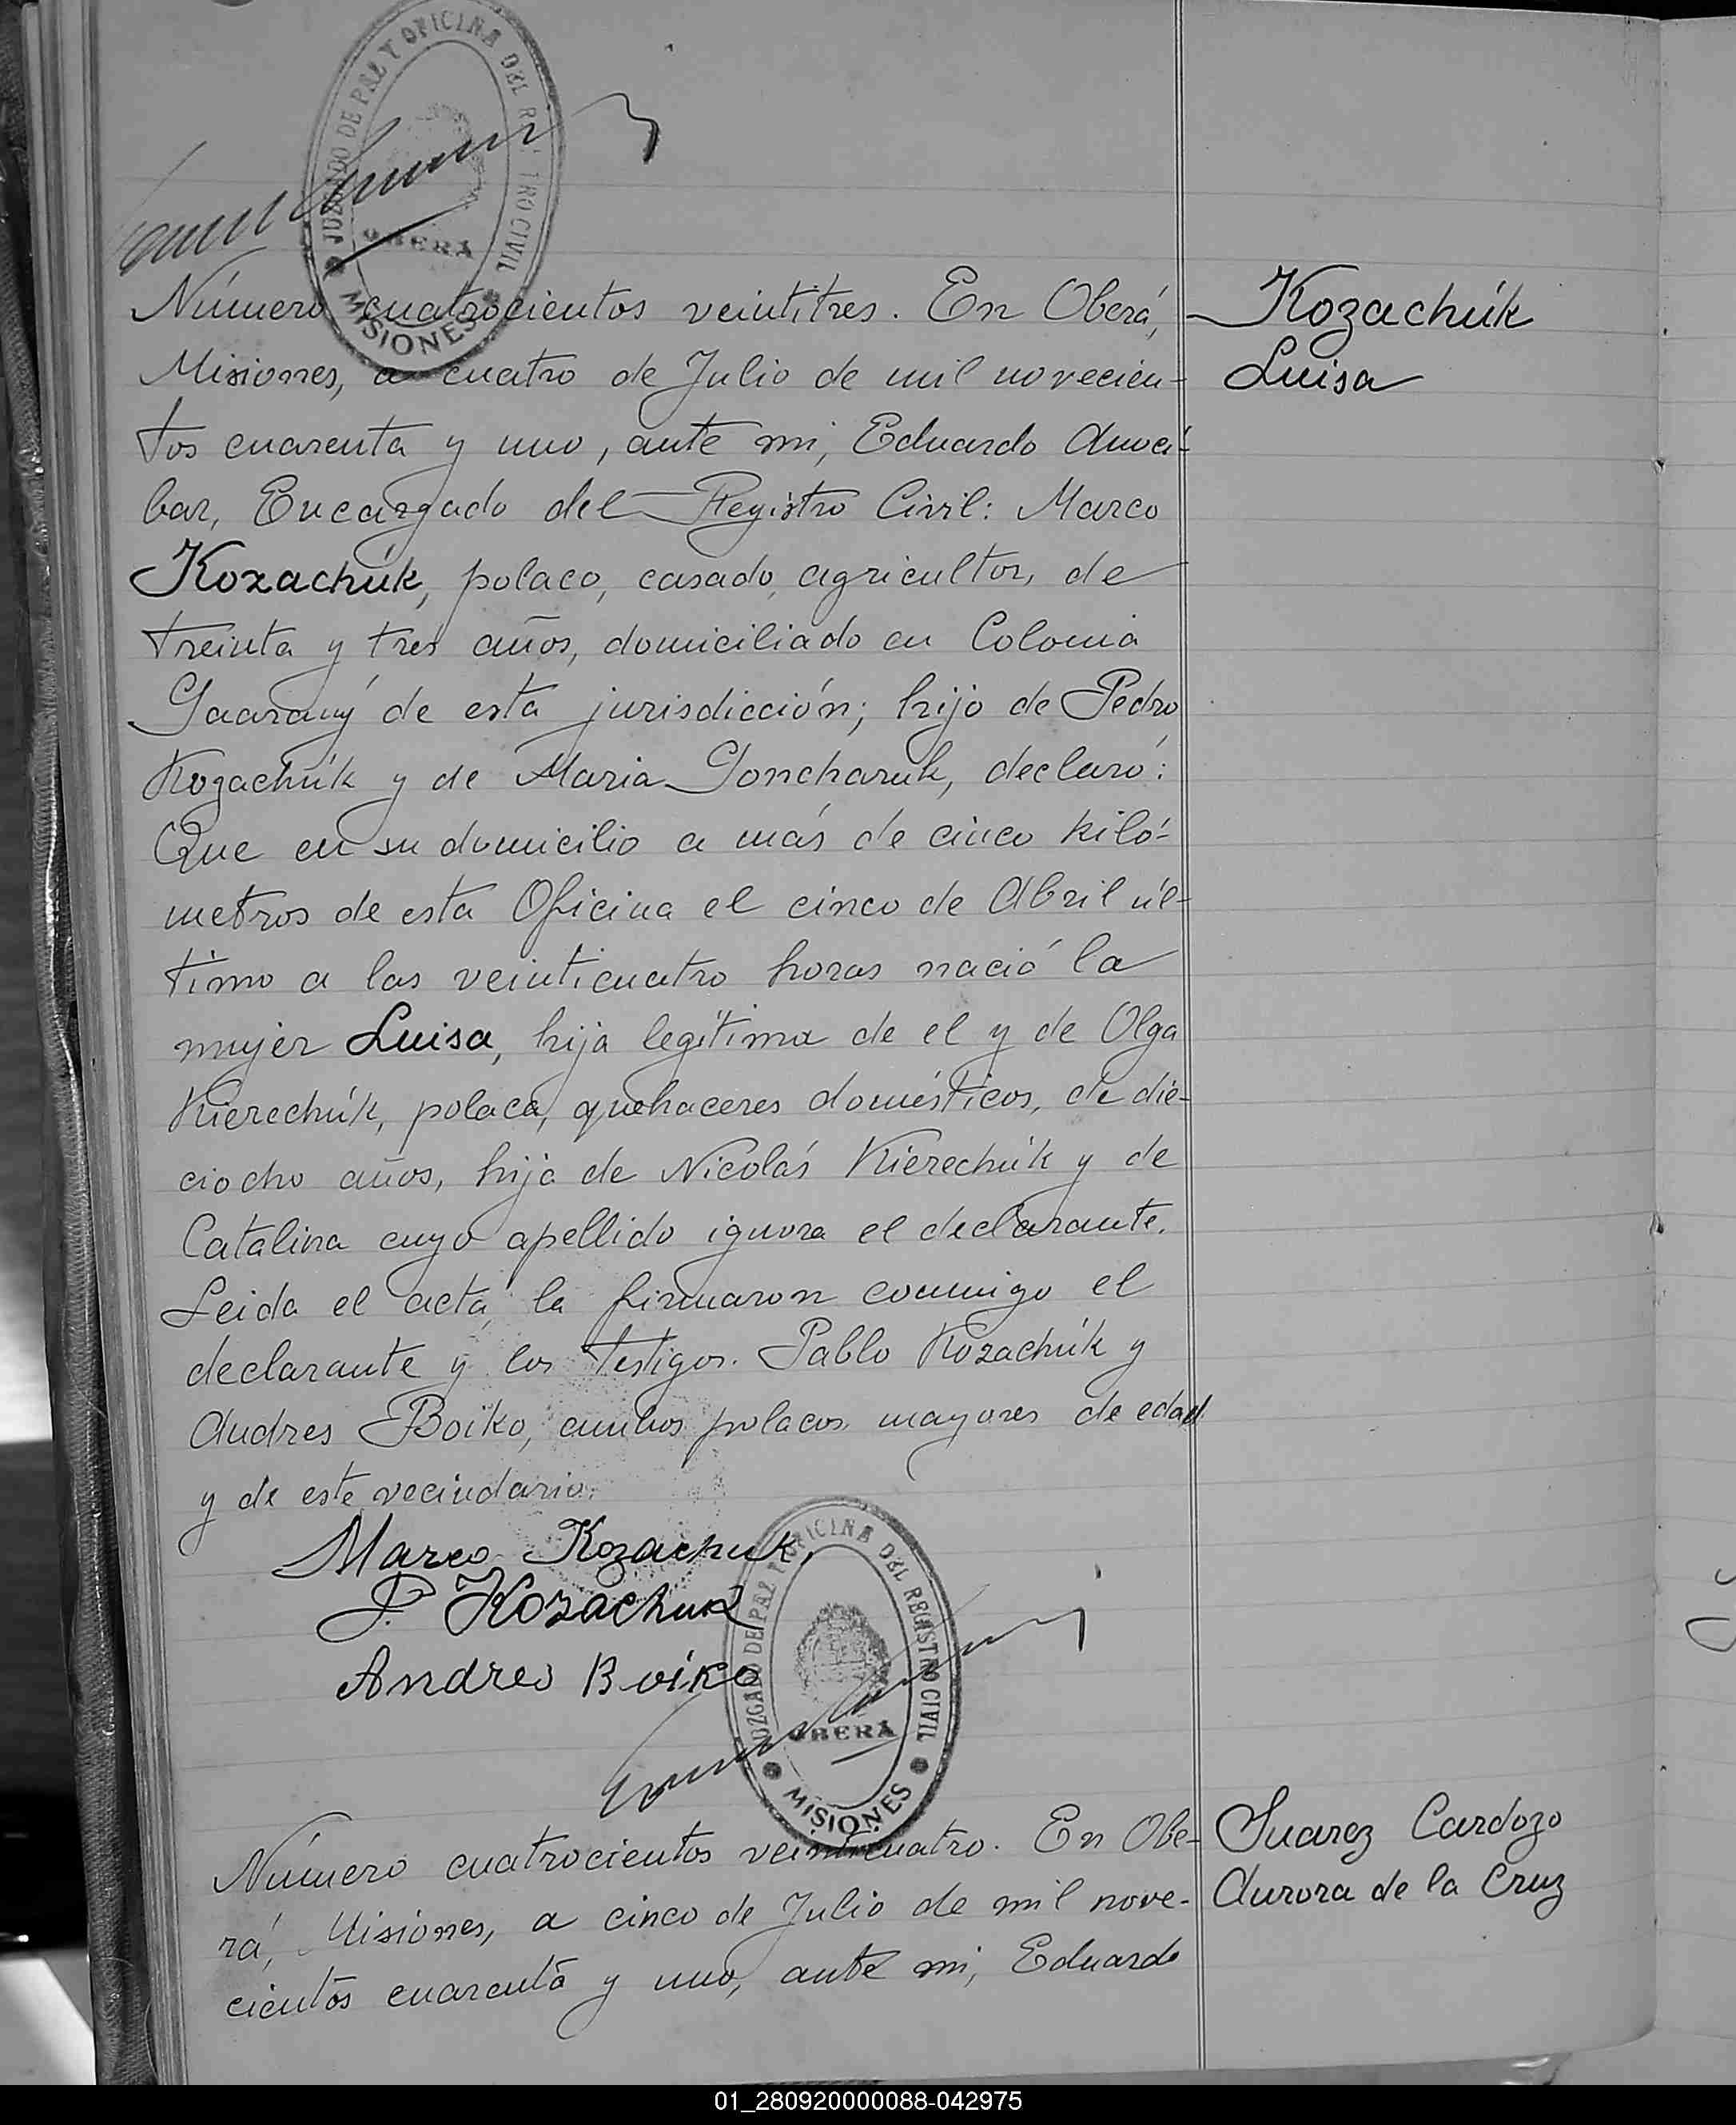 JUZGADO DE PAZ Y OFICINA DEL REGISTRO CIVIL
OBERÁ
MISIONES
Número cuatrocientos veintitres. En Oberá,
Kozachúk
Luisa
Misiones, a cuatro de Julio de mil novecien-
tos cuarenta y uno, ante mi, Eduardo
bar, Encargado del Registro Civil: Marco
Kozachúk, polaco, casado, agricultor, de
treinta y tres años, domiciliado en Colonia
Guarany de esta jurisdicción; hijo de Pedro
Kozachúk y de Maria Goncharuk, declaró:
Que en su domicilio a más de cinco kiló-
metros de esta Oficina el cinco de Abril úl-
timo a las veinticuatro horas nació la
mujer Luisa, hija legítima de el y de Olga
Kierechúk, polaca, quehaceres domésticos, de die-
ciocho años, hija de Nicolás Kierechúk y de
Catalina cuyo apellido ignora el declarante.
Leida el acta, la firmaron conmigo el
declarante y los testigos. Pablo Kozachúk y
Andres Boiko, ambos polacos, mayores de edad
y de este vecindario.
Marco Kozachuk,
P. Kozachuk
Andres Boiko
JUZGADO DE PAZ Y OFICINA DEL REGISTRO CIVIL
OBERÁ
MISIONES
Número cuatrocientos veinticuatro. En Obe-
Suarez Cardozo
Aurora de la Cruz
rá, Misiones, a cinco de Julio de mil nove-
cientos cuarenta y uno, ante mi, Eduardo
01_280920000088-042975